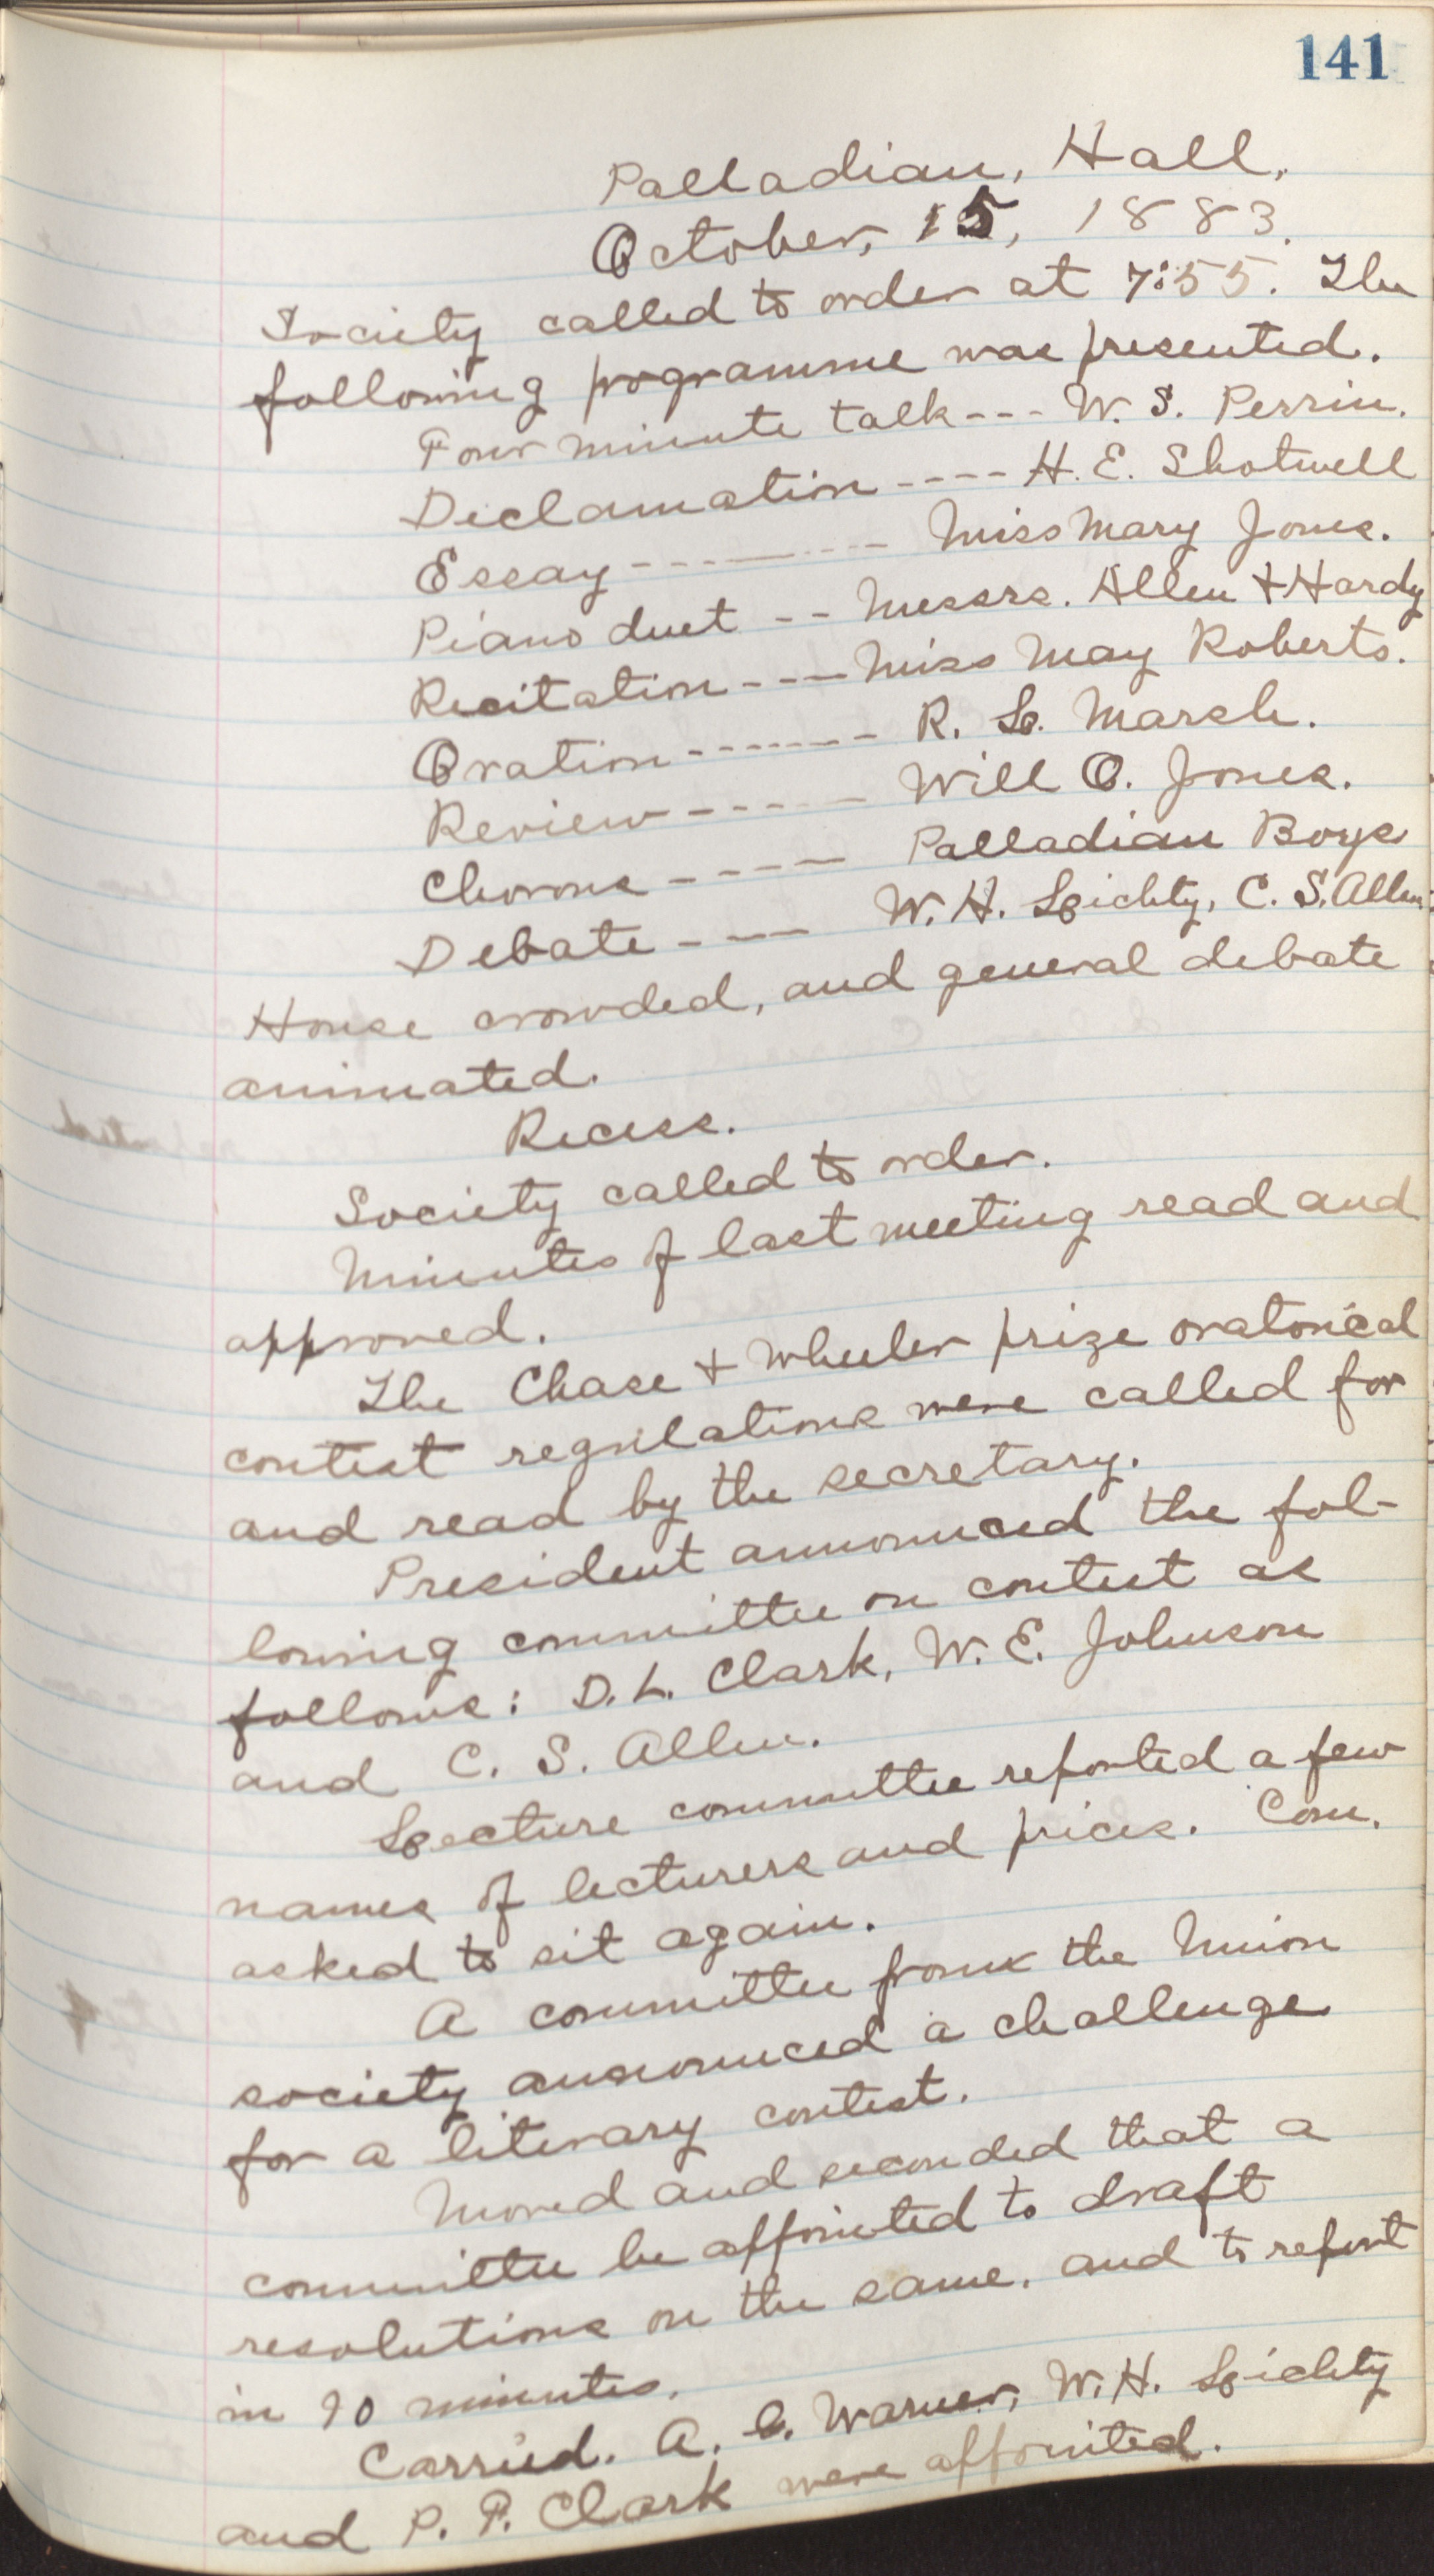 141
Palladian, Hall,
October, 15, 1883.
Society called to order at 7:55. The
following programme was presented.
Four minute talk --- W. S. Perrin.
Declamation ---- H. E. Shotwell
Essay --------- Miss Mary Jones.
Piano duet -- Messrs. Allen & Hardy
Recitation ---- Miss May Roberts.
Oration ------- R. L. Marsh.
Review ----- Will O. Jones.
Chorous ----- Palladian Boys
Debate ---- W. H. Lichty, C. S. Allen
House crowded, and general debate
animated.
Recess.
Society called to order.
Minutes of last meeting read and
approved.
The Chase & Wheeler prize oratorical
contest regulations were called for
and read by the secretary.
President announced the fol-
lowing committee on contest as
follows: D. L. Clark, W. E. Johnson
and C. S. Allen.
Lecture committee reported a few
names of lecturers and prices. Com.
asked to sit again.
A committee from the Union
society announced a challenge
for a literary contest.
Moved and seconded that a
committee be appointed to draft
resolutions on the same, and to report
in 10 minutes.
Carried. A. C. Warner, W. H. Lichty
and P. F. Clark were appointed.